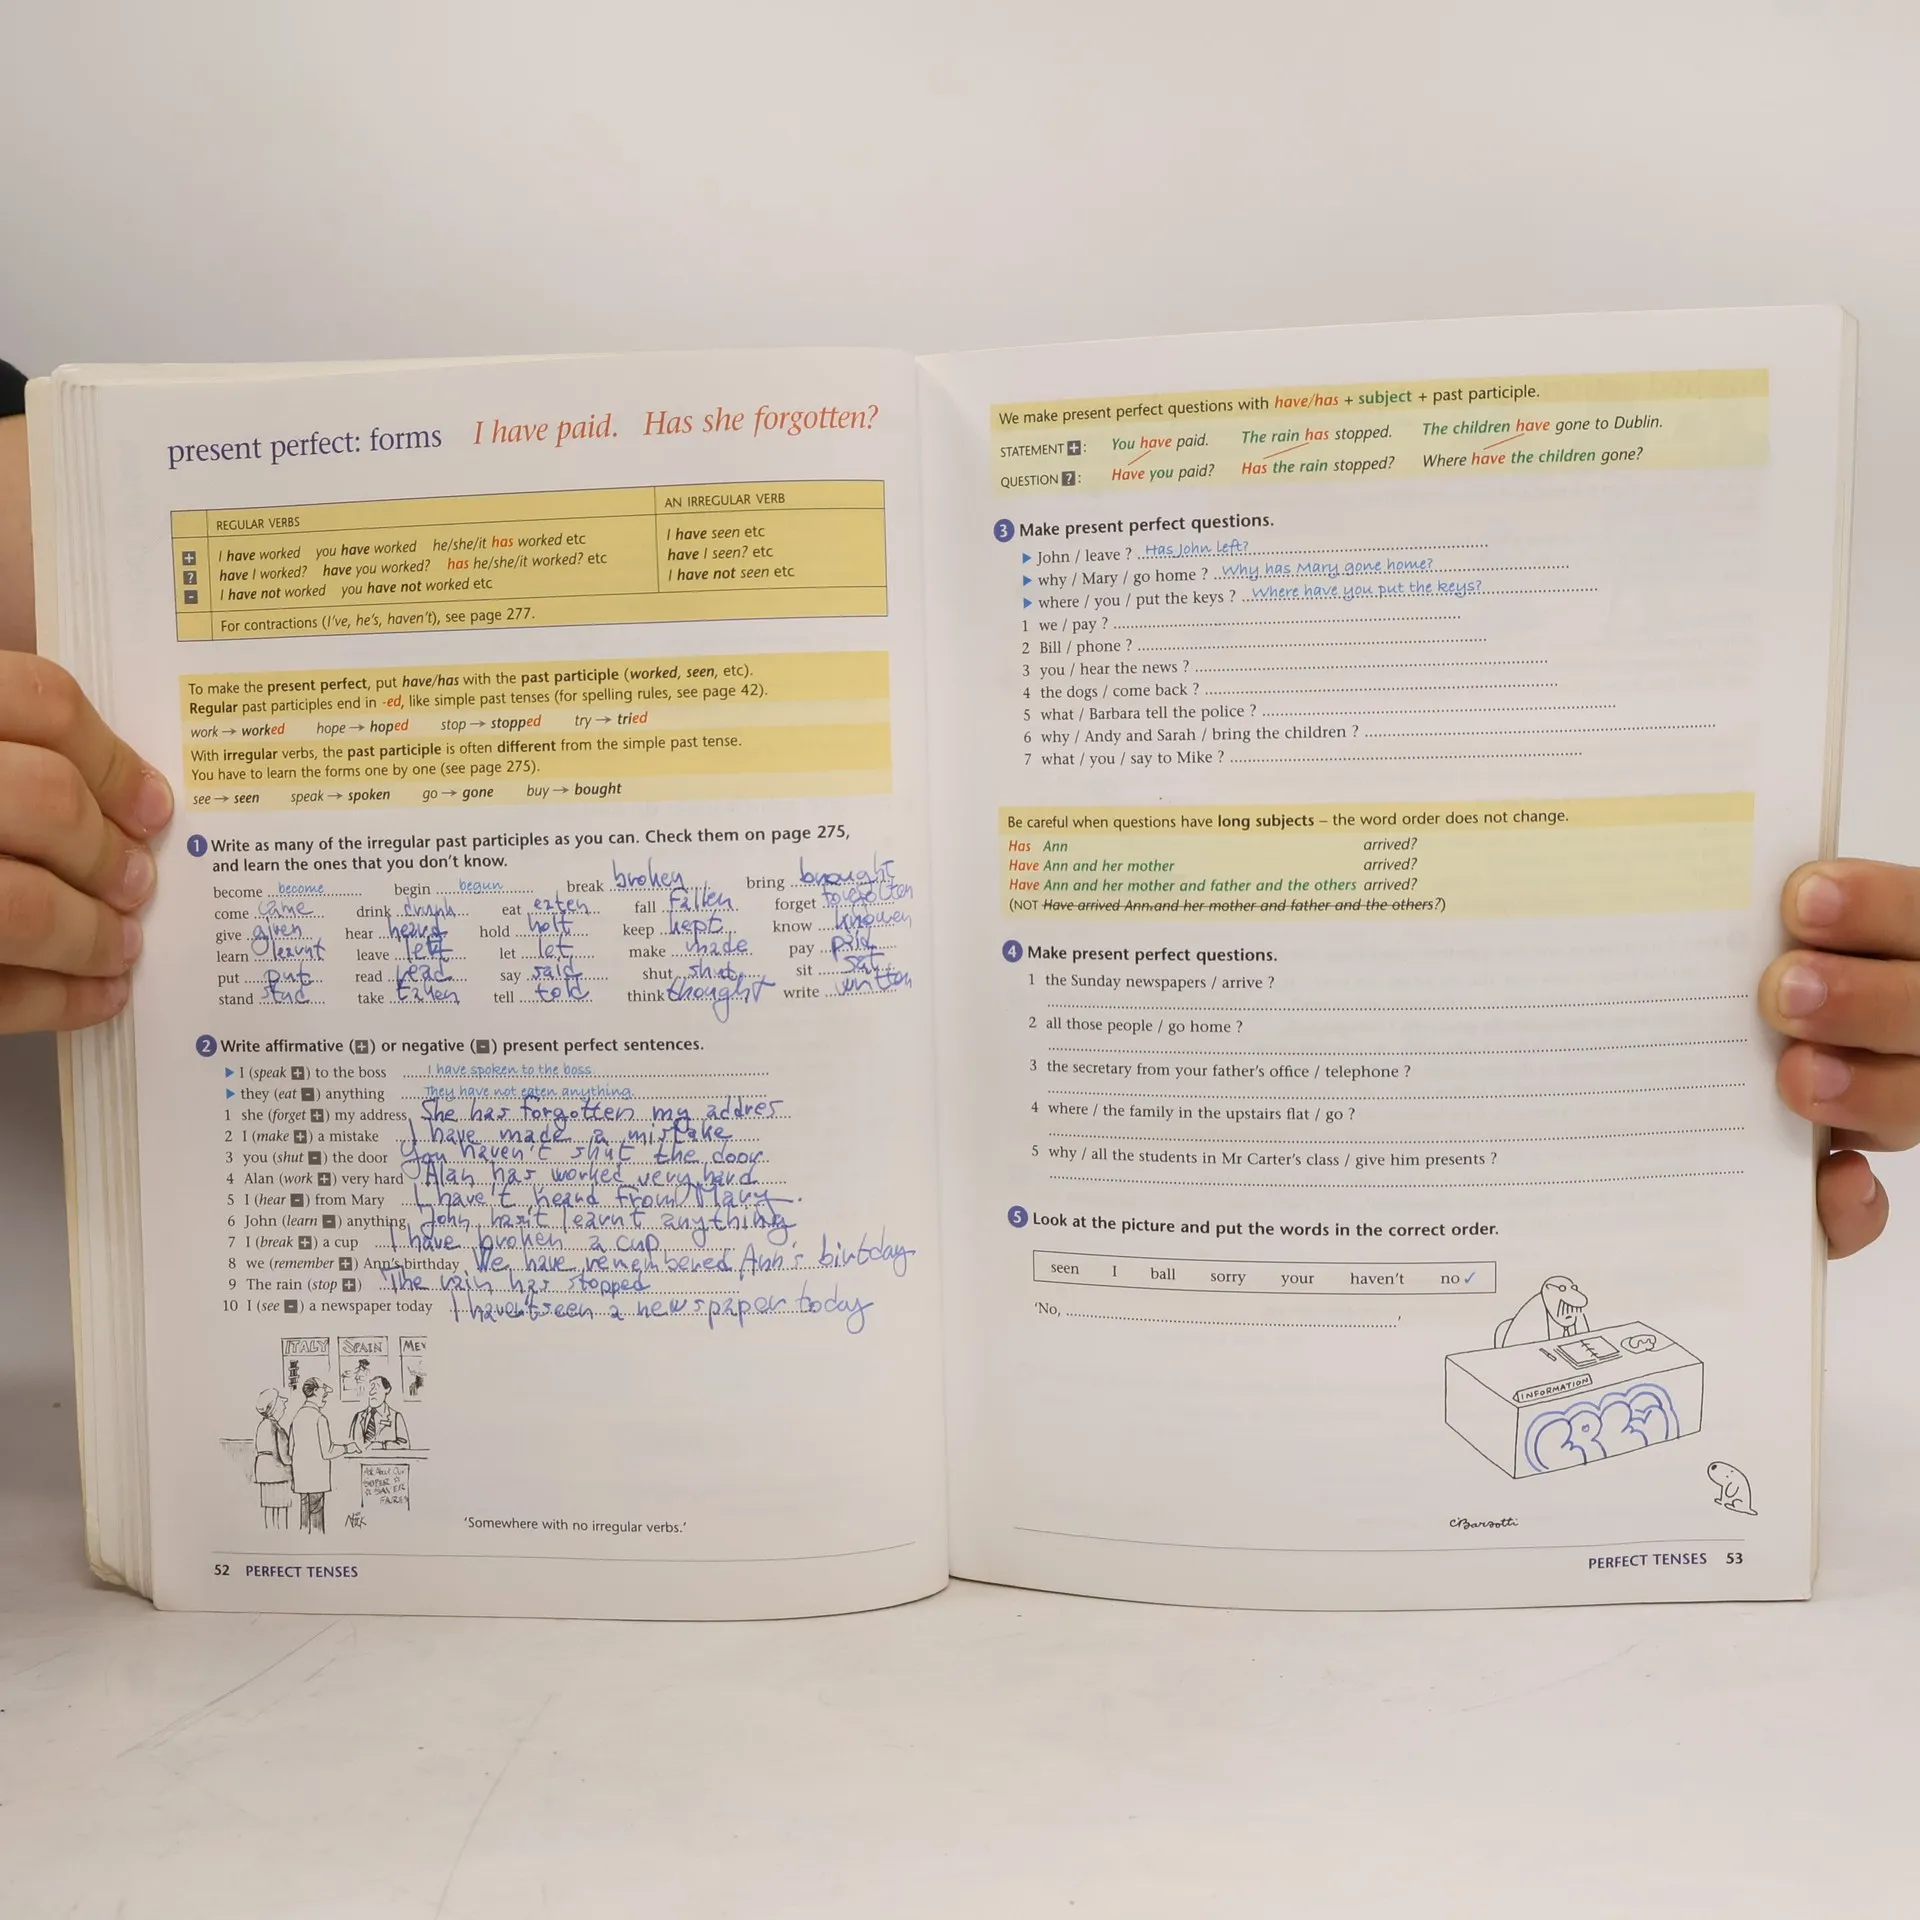 present perfect: forms I have paid. Has she forgotten?
REGULAR VERBS AN IRREGULAR VERB
+ I have worked you have worked he/she/it has worked etc I have seen etc
? have I worked? have you worked? has he/she/it worked? etc have I seen? etc
- I have not worked you have not worked etc I have not seen etc
For contractions (I've, he's, haven't), see page 277.
To make the present perfect, put have/has with the past participle (worked, seen, etc).
Regular past participles end in -ed, like simple past tenses (for spelling rules, see page 42).
work → worked hope → hoped stop → stopped try → tried
With irregular verbs, the past participle is often different from the simple past tense.
You have to learn the forms one by one (see page 275).
see → seen speak → spoken go → gone buy → bought
1 Write as many of the irregular past participles as you can. Check them on page 275,
and learn the ones that you don't know.
become become begin begun break broken bring brought
come came drink drunk eat eaten fall fallen forget forgotten
give given hear heard hold holt keep kept know knowen
learn learnt leave left let let make made pay paid
put put read read say said shut shut sit sat
stand stud take taken tell told think thought write written
2 Write affirmative (+) or negative (-) present perfect sentences.
▶ I (speak +) to the boss I have spoken to the boss.
▶ they (eat -) anything They have not eaten anything.
1 she (forget +) my address She has forgotten my addres
2 I (make +) a mistake I have made a mistake
3 you (shut -) the door You haven't shut the door
4 Alan (work +) very hard Alan has worked very hard
5 I (hear -) from Mary I have't heard from Mary.
6 John (learn -) anything John hasit learnt anything
7 I (break +) a cup I have broken a cup
8 we (remember +) Ann's birthday We have remembered Ann's birtday
9 The rain (stop +) The rain has stopped
10 I (see -) a newspaper today I haven't seen a newspaper today
ITALY SPAIN MEX
Ask About Our
SUPER
SAVER
FARES
'Somewhere with no irregular verbs.'
52 PERFECT TENSES
We make present perfect questions with have/has + subject + past participle.
STATEMENT +: You have paid. The rain has stopped. The children have gone to Dublin.
QUESTION ?: Have you paid? Has the rain stopped? Where have the children gone?
3 Make present perfect questions.
▶ John / leave ? Has John left?
▶ why / Mary / go home ? Why has Mary gone home?
▶ where / you / put the keys ? Where have you put the keys?
1 we / pay ?
2 Bill / phone ?
3 you / hear the news ?
4 the dogs / come back ?
5 what / Barbara tell the police ?
6 why / Andy and Sarah / bring the children ?
7 what / you / say to Mike ?
Be careful when questions have long subjects – the word order does not change.
Has Ann arrived?
Have Ann and her mother arrived?
Have Ann and her mother and father and the others arrived?
(NOT Have arrived Ann and her mother and father and the others?)
4 Make present perfect questions.
1 the Sunday newspapers / arrive ?
2 all those people / go home ?
3 the secretary from your father's office / telephone ?
4 where / the family in the upstairs flat / go ?
5 why / all the students in Mr Carter's class / give him presents ?
5 Look at the picture and put the words in the correct order.
seen I ball sorry your haven't no ✓
'No, .'
INFORMATION
CBarsotti
PERFECT TENSES 53